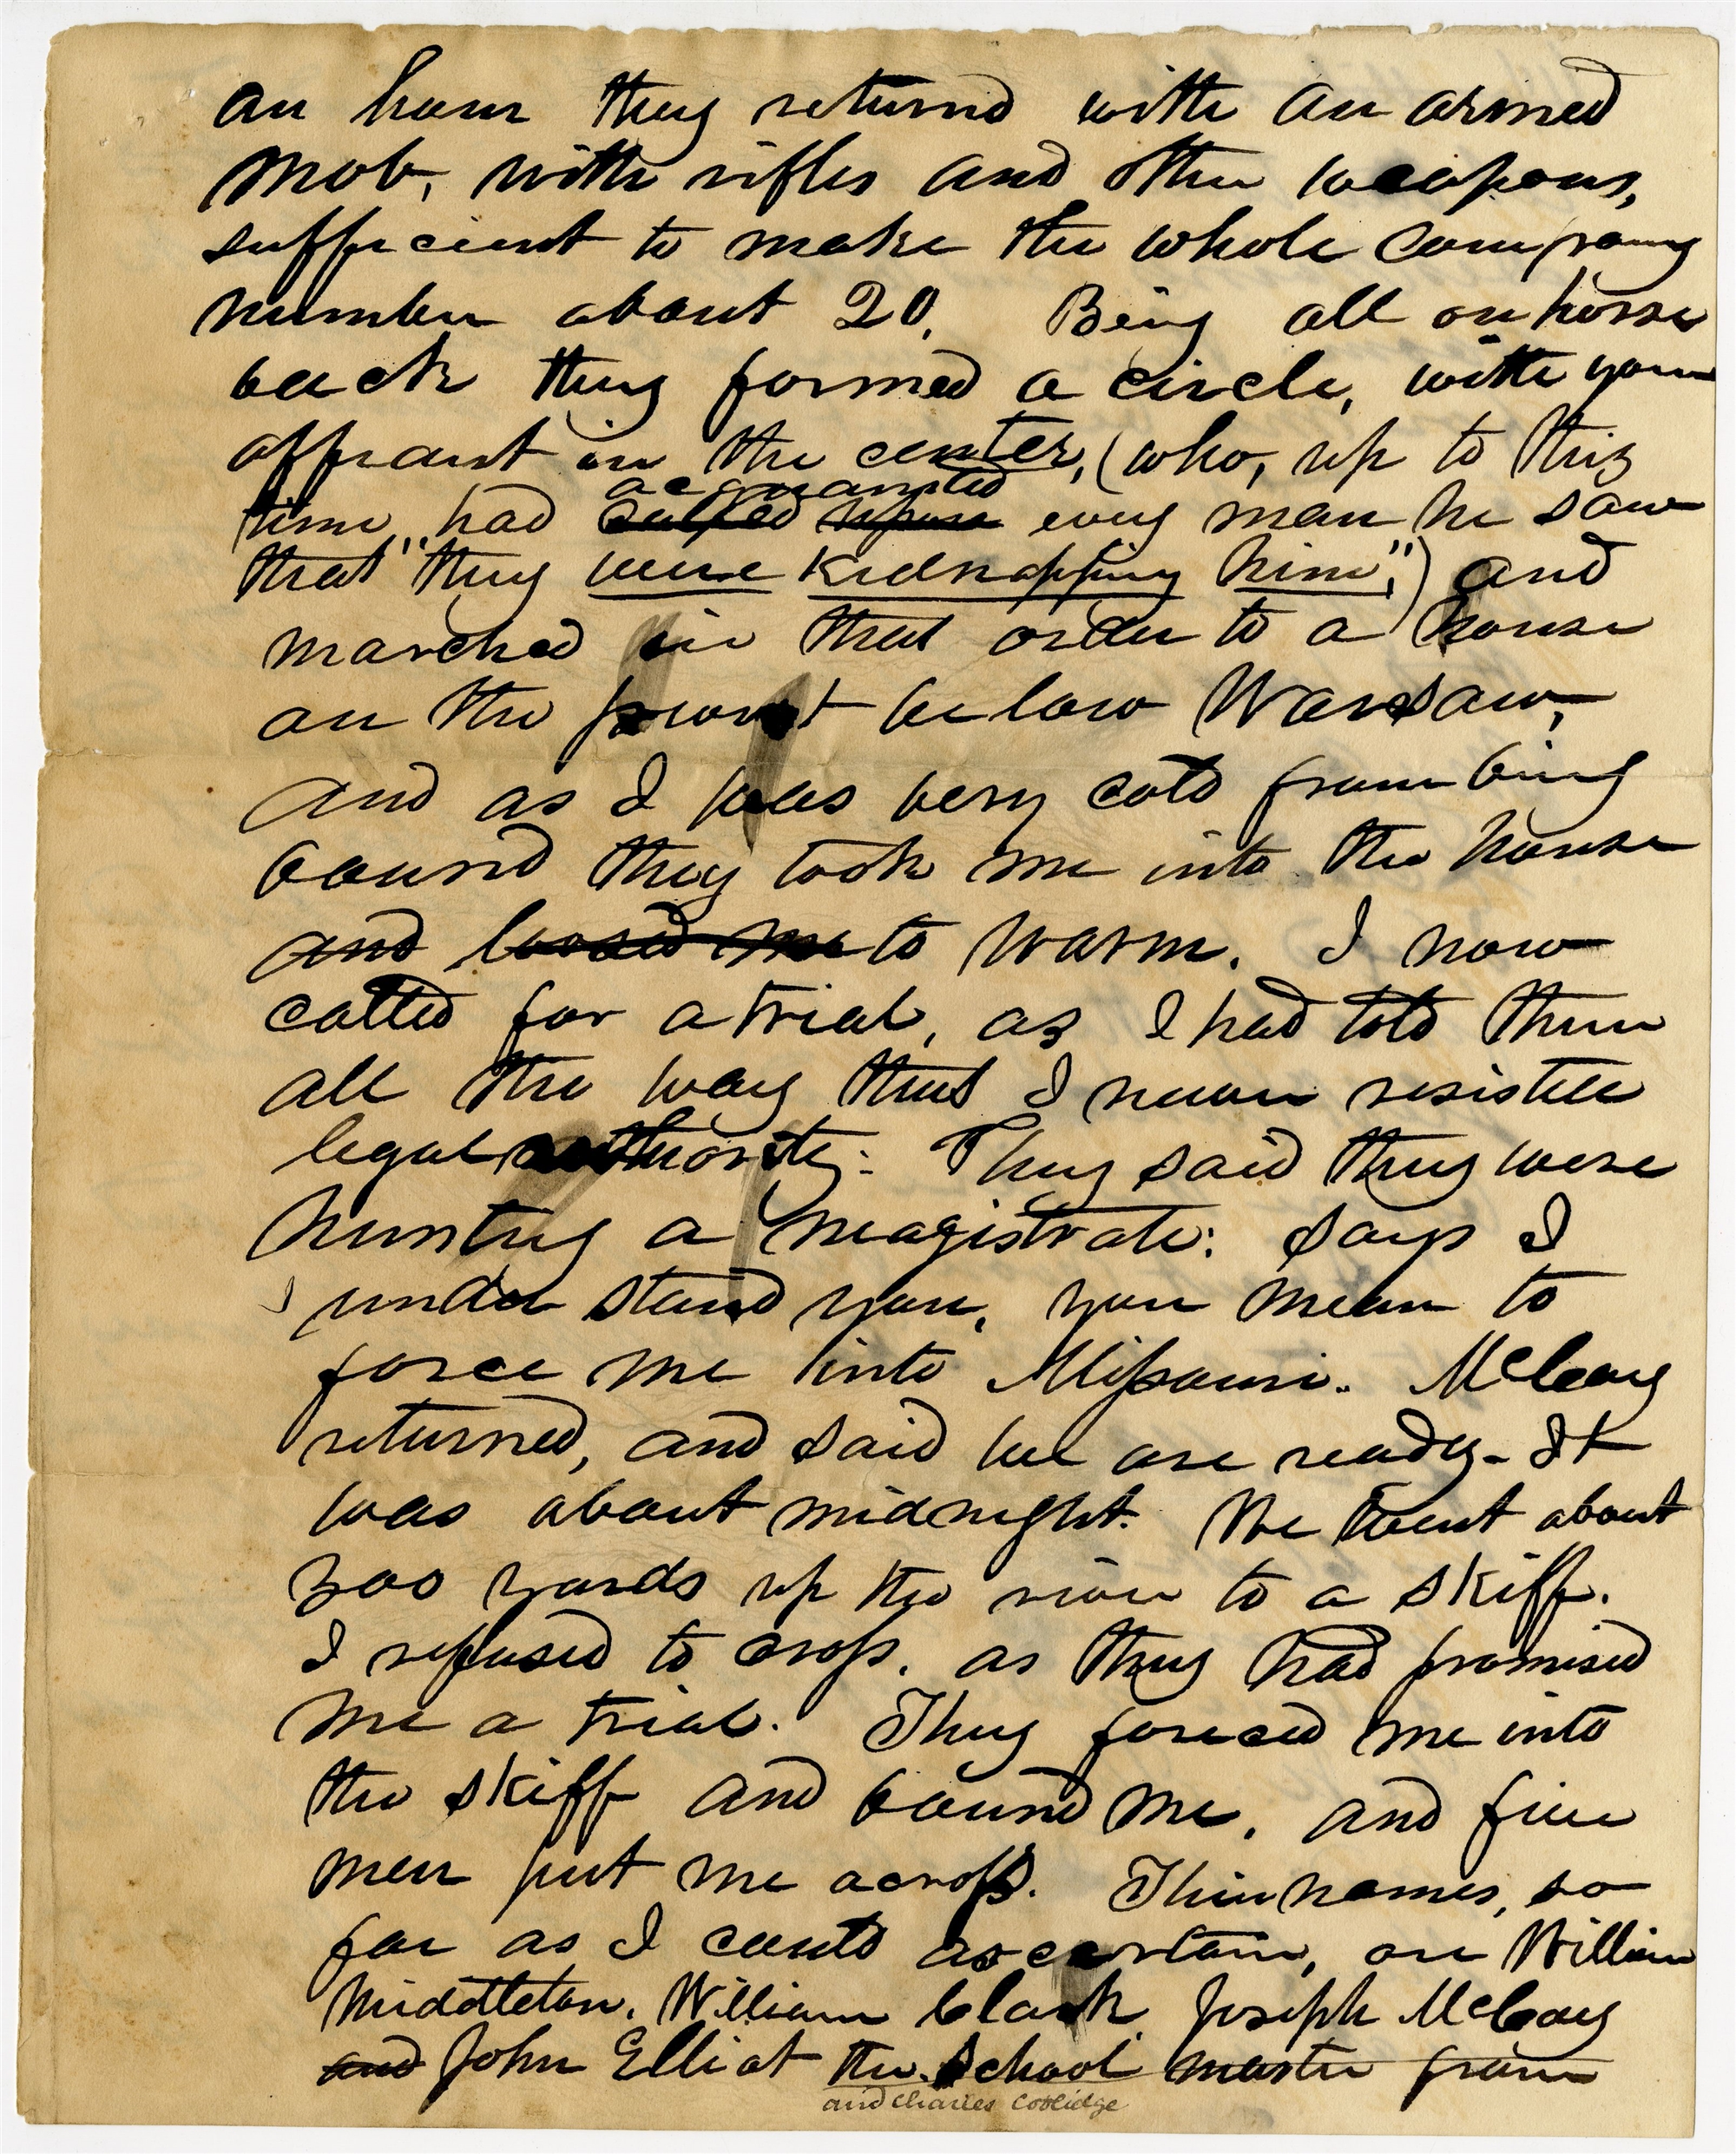 an hour they returnd with an armed
mob, with rifles and other weapons,
sufficient to make the whole company
number about 20. Being all on horse
back they formed a circle, with your
affiant in the center, (who, up to this
acquainted
time, had called upon every man he saw
that "they were kidnapping him",) and
marched in that order to a house
on the point below Warsaw,
and as I was very cold from being
bound they took me into the house
and loosed me to warm. I now
called for a trial, as I had told them
all the way that I never resisted
legal authority: They said they were
hunting a magistrate: says I
I under stand you, you mean to
force me into Missouri. McCoy
returned, and said we are ready. It
was about midnight. We went about
300 yards up the river to a skiff.
I refused to cross, as they had promised
me a trial. They forced me into
the skiff and bound me, and five
men put me across. Their names, so
far as I could ascertain, are William
Middleton, William Clark, Joseph McCoy
and John Elliot the School master from
and Charles Coolidge